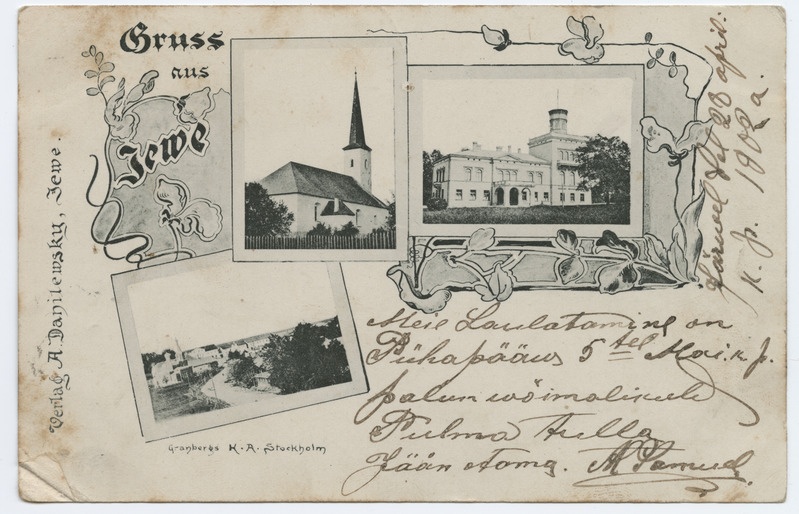 Gruss
aus
Jewe
Verlag A. Danilewsky, Jewe.
Granbergs K. A. Stockholm
sel 28 april.
k. p. 1902 a.
Meie Laulatamine on
Pühapääws 5tel Mai. k. p.
palun wõimolikult
Pulma tulla
Jään otama.